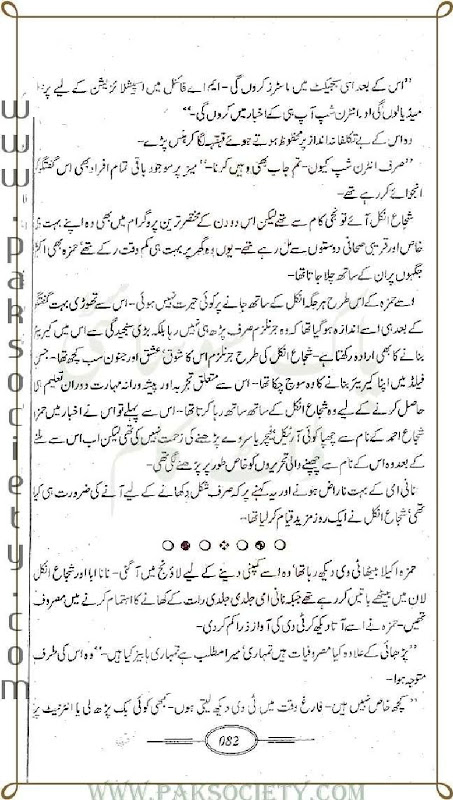 ”اس کے بعد اسی سبجیکٹ میں ماسٹرز کروں گی۔ ایم اے فائنل میں اسپیشلائزیشن کے لیے پرنٹ
میڈیا لوں گی اور انٹرن شپ آپ ہی کے اخبار میں کروں گی۔“
وہ اس کے بے تکلفانہ انداز پر محظوظ ہوتے ہوئے قہقہہ لگا کر ہنس پڑے۔
”صرف انٹرن شپ کیوں۔ تم جاب بھی وہیں کرنا۔“ میز پر موجود باقی تمام افراد بھی اس گفتگو کو
انجوائے کر رہے تھے۔
شجاع انکل آئے تو بھی کام سے تھے لیکن اس دو دن کے مختصر ترین پروگرام میں بھی وہ اپنے بہت
خاص اور قریبی صحافی دوستوں سے مل رہے تھے۔ یوں وہ گھر پر بہت ہی کم وقت رکے تھے حمزہ بھی اکثر
جگہوں پر ان کے ساتھ چلا جاتا تھا۔
اسے حمزہ کے اس طرح ہر جگہ انکل کے ساتھ جانے پر کوئی حیرت نہیں ہوئی۔ اس سے تھوڑی بہت گفتگو
کے بعد ہی اسے اندازہ ہو گیا تھا کہ وہ جرنلزم صرف پڑھ ہی نہیں رہا بلکہ بڑی سنجیدگی سے اس میں کیریئر
بنانے کا بھی ارادہ رکھتا ہے۔ شجاع انکل کی طرح جرنلزم اس کا شوق، عشق اور جنون سب کچھ تھا۔ جس
فیلڈ میں اپنا کیریئر بنانے کا وہ سوچ چکا تھا۔ اس سے متعلق تجربہ اور پیشہ ورانہ مہارت دوران تعلیم ہی
حاصل کرنے کے لیے وہ شجاع انکل کے ساتھ ساتھ رہا کرتا تھا۔ اس سے پہلے تو اس نے اخبار میں حمزہ
شجاع احمد کے نام سے چھپا کوئی آرٹیکل، فیچر یا سروے پڑھنے کی زحمت نہیں کی تھی لیکن اب اس سے ملنے
کے بعد وہ اس کے نام سے چھپنے والی تحریروں کو خاص طور پر پڑھنے لگی تھی۔
نانی امی کے بہت ناراض ہونے اور یہ کہنے پر کہ صرف شکل دکھانے کے لیے آنے کی ضرورت ہی کیا
تھی، شجاع انکل نے ایک روز مزید قیام کر لیا تھا۔
حمزہ اکیلا بیٹھا ٹی وی دیکھ رہا تھا، وہ اسے کمپنی دینے کے لیے لاؤنج میں آ گئی۔ نانا ابا اور شجاع انکل
لان میں بیٹھے باتیں کر رہے تھے جبکہ نانی امی جلدی جلدی رات کے کھانے کا اہتمام کرنے میں مصروف
تھیں۔ حمزہ نے اسے آتا دیکھ کر ٹی وی کی آواز ذرا کم کر دی۔
”پڑھائی کے علاوہ کیا مصروفیات ہیں تمہاری، میرا مطلب ہے تمہاری ہابیز کیا ہیں۔“ وہ اس کی طرف
متوجہ ہوا۔
”کچھ خاص نہیں ہیں۔ فارغ وقت میں ٹی وی دیکھ لیتی ہوں۔ کبھی کوئی بک پڑھ لی یا انٹرنیٹ پر
082
www.paksociety.com
WWW.PAKSOCIETY.COM